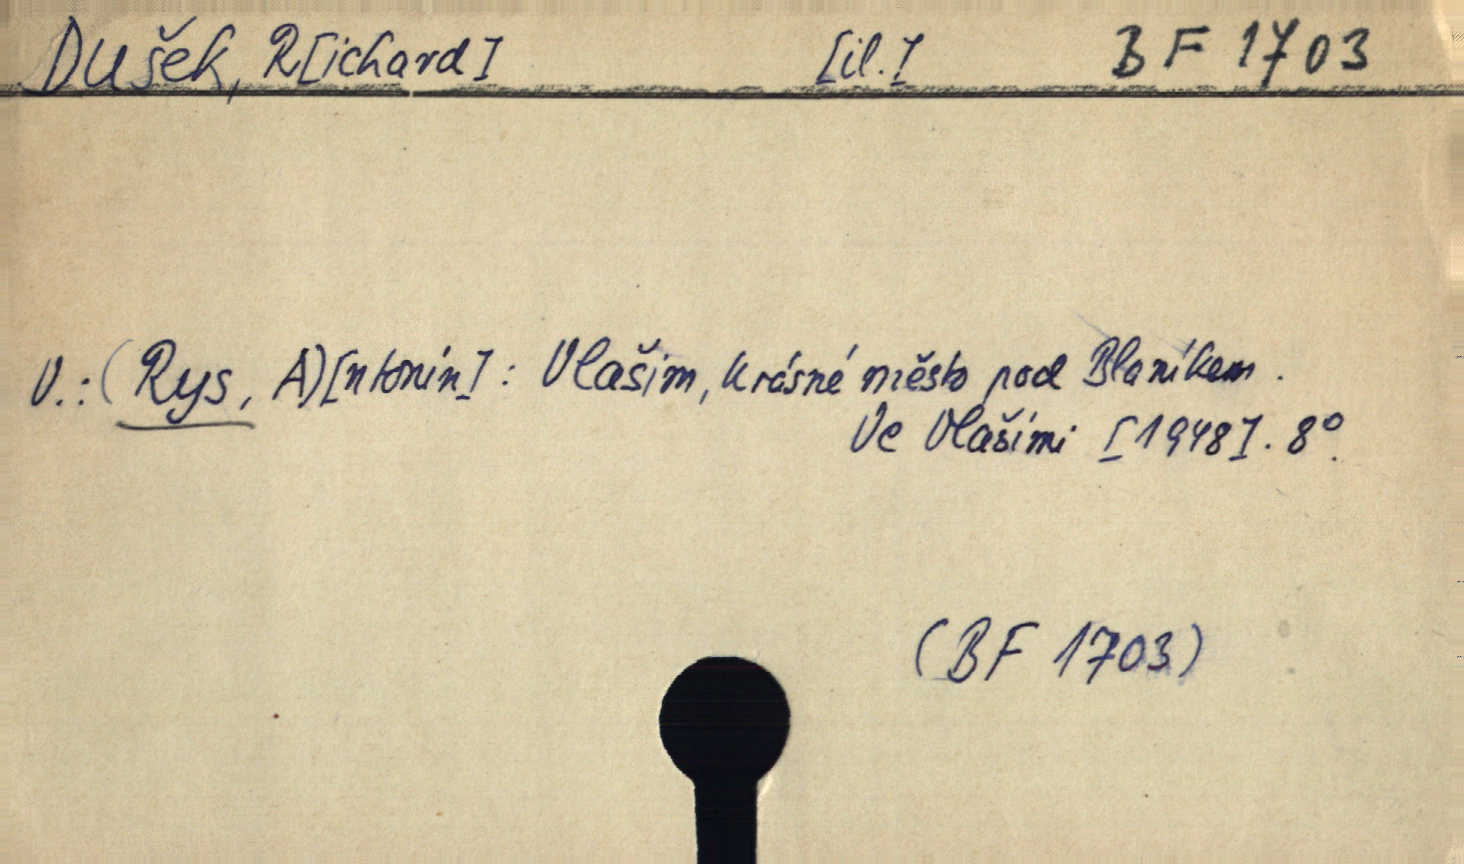 Dušek, R[ichard] [il.] BF 1703
V.: (Rys, A)[ntonín]: Vlašim, krásné město pod Blaníkem.
Ve Vlašimi [1948]. 8°.
(BF 1703)